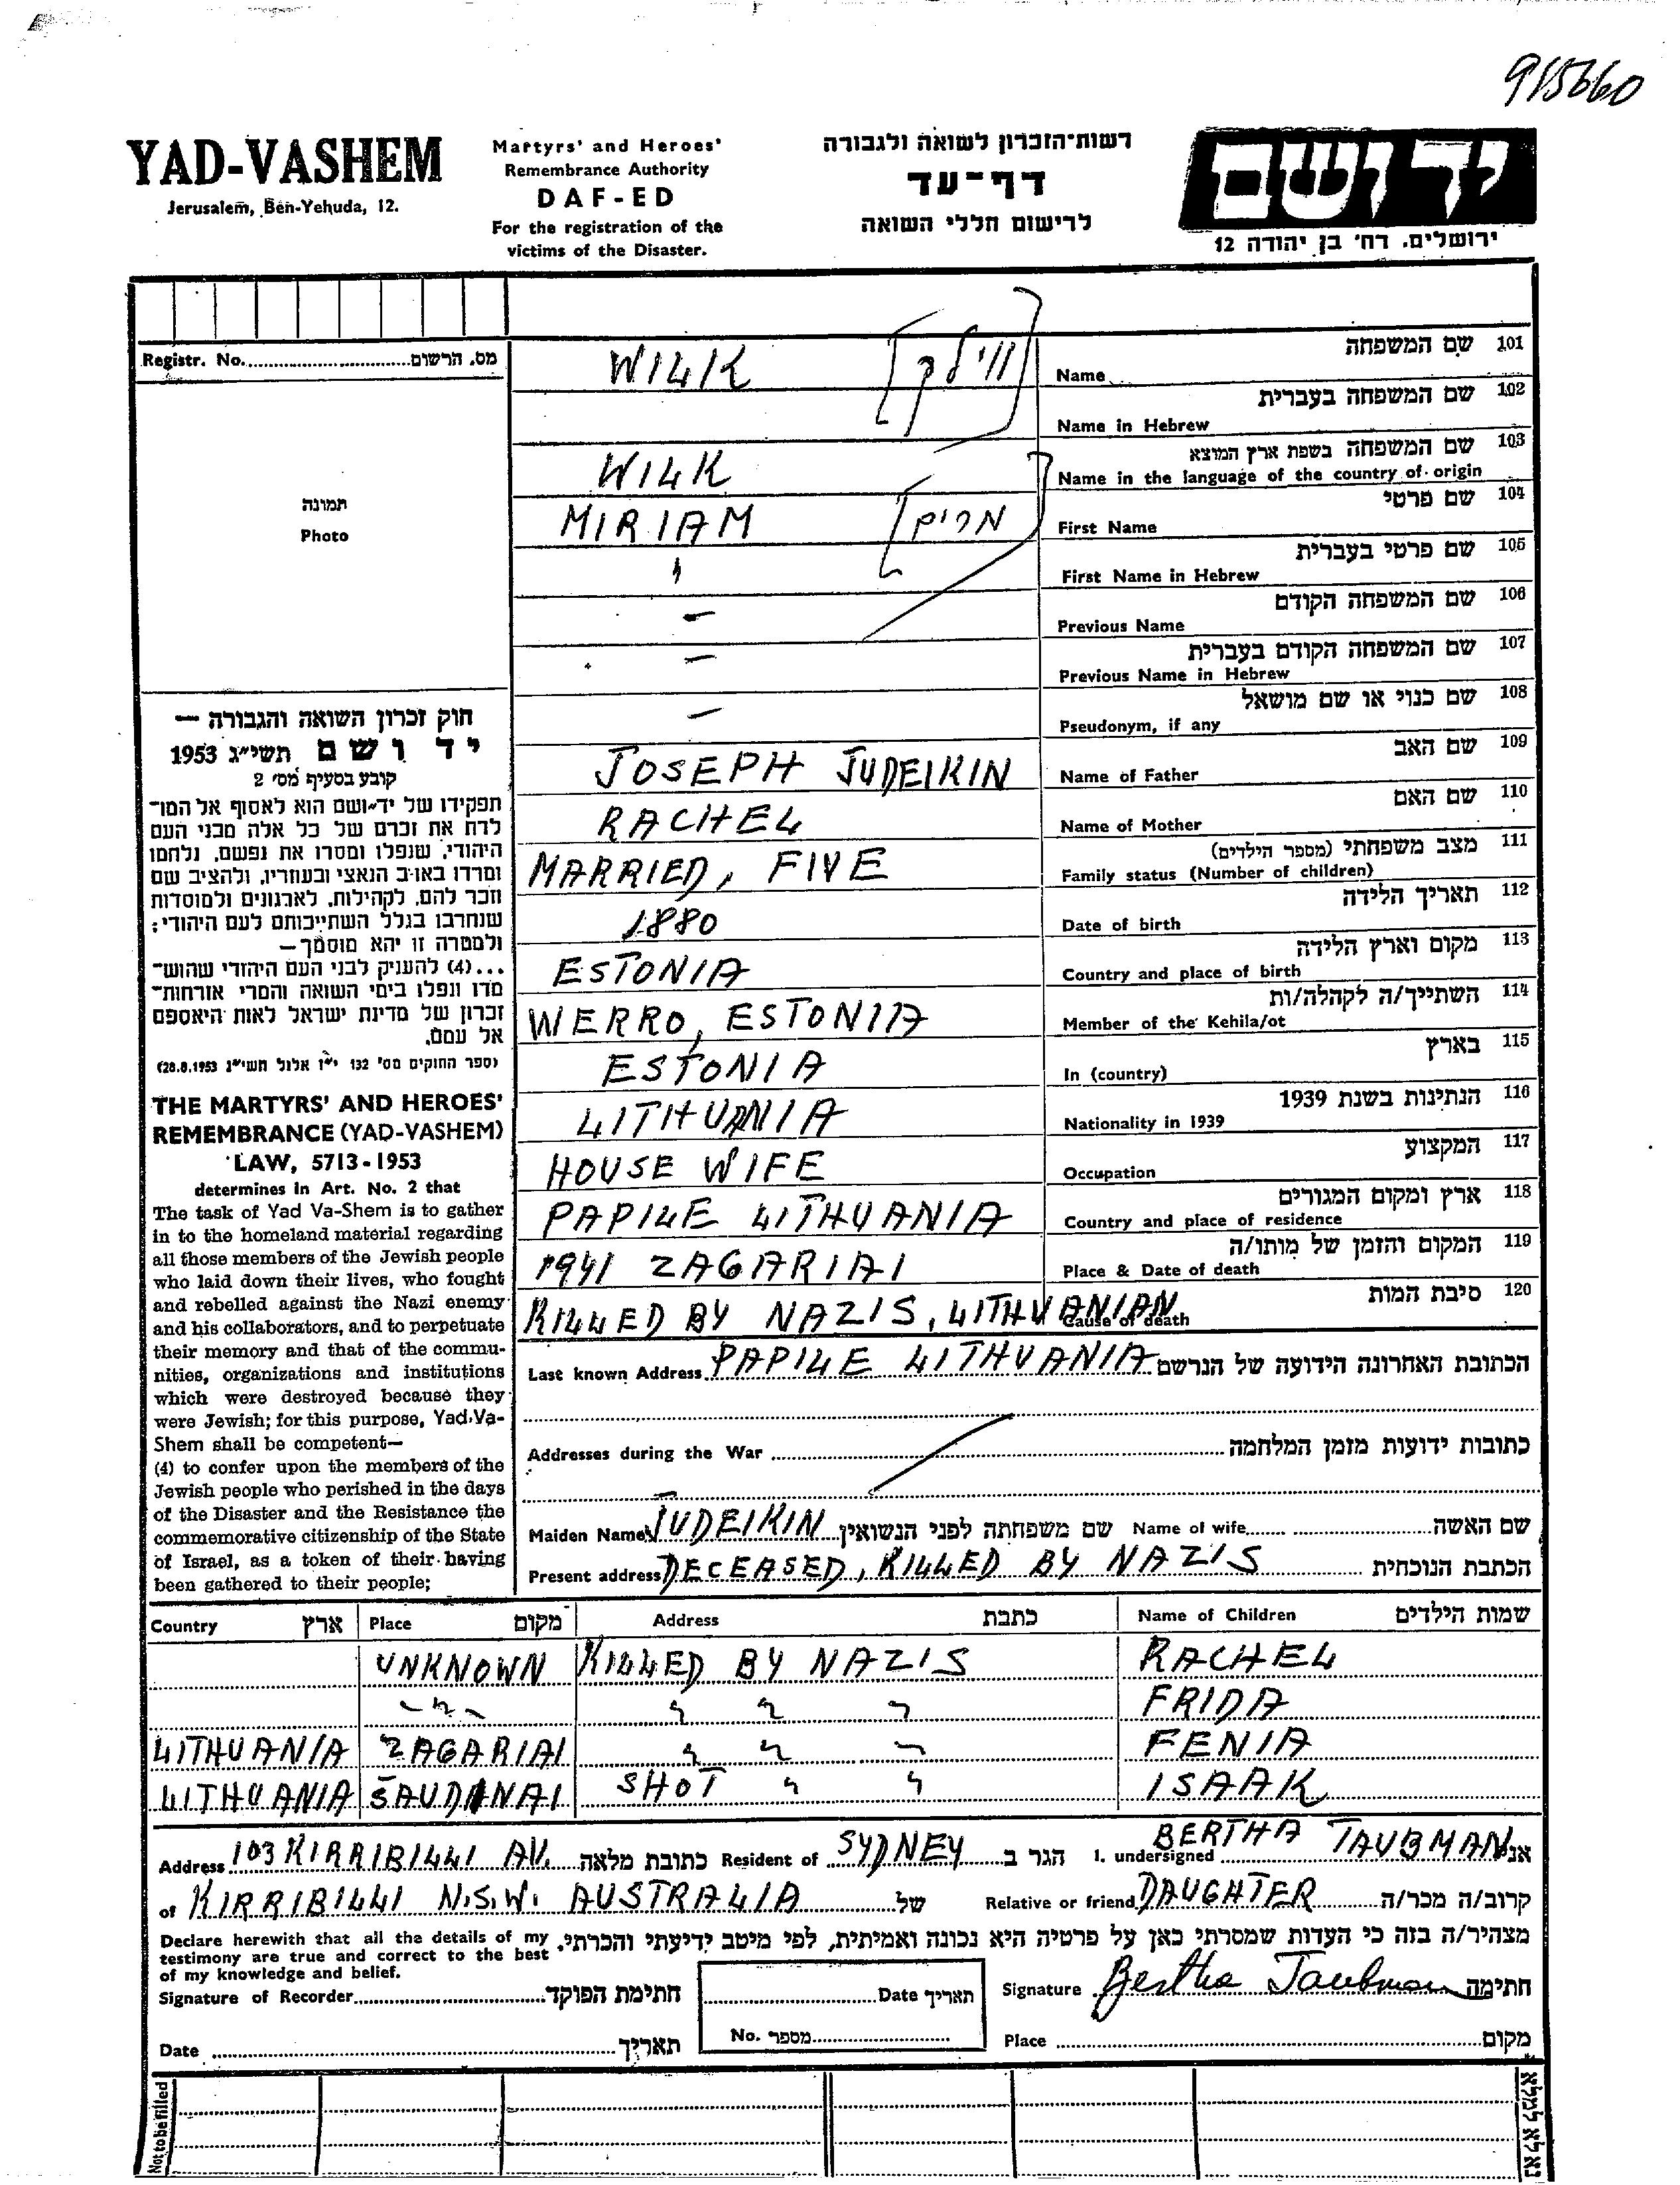 915660
YAD-VASHEM
Jerusalem, Ben-Yehuda, 12.
Martyrs' and Heroes'
Remembrance Authority
DAF-ED
For the registration of the
victims of the Disaster.
רשות-הזכרון לשואה ולגבורה
דף-עד
לרישום חללי השואה
יד ושם
ירושלים. רח' בן יהודה 12
Registr. No. מס. הרשום
תמונה
Photo
חוק זכרון השואה והגבורה —
יד ושם תשי"ג 1953
קובע בסעיף מס' 2
תפקידו של יד-ושם הוא לאסוף אל המו-
לדת את זכרם של כל אלה מבני העם
היהודי, שנפלו ומסרו את נפשם, נלחמו
ומרדו באויב הנאצי ובעוזריו, ולהציב שם
וזכר להם, לקהילות, לארגונים ולמוסדות
שנחרבו בגלל השתייכותם לעם היהודי;
ולמטרה זו יהא מוסמך —
...(4) להעניק לבני העם היהודי שהוש-
מדו ונפלו בימי השואה והמרי אזרחות-
זכרון של מדינת ישראל לאות היאספם
אל עמם.
(ספר החוקים מס' 132 י"ז אלול תשי"ג 28.8.1953)
THE MARTYRS' AND HEROES'
REMEMBRANCE (YAD-VASHEM)
LAW, 5713-1953
determines in Art. No. 2 that
The task of Yad Va-Shem is to gather
in to the homeland material regarding
all those members of the Jewish people
who laid down their lives, who fought
and rebelled against the Nazi enemy
and his collaborators, and to perpetuate
their memory and that of the commu-
nities, organizations and institutions
which were destroyed because they
were Jewish; for this purpose, Yad-Va-
Shem shall be competent—
(4) to confer upon the members of the
Jewish people who perished in the days
of the Disaster and the Resistance the
commemorative citizenship of the State
of Israel, as a token of their having
been gathered to their people;
WILK [ווילק] Name שם המשפחה 101
Name in Hebrew שם המשפחה בעברית 102
WILK Name in the language of the country of origin שם המשפחה בשפת ארץ המוצא 103
MIRIAM [מרים] First Name שם פרטי 104
First Name in Hebrew שם פרטי בעברית 105
— Previous Name שם המשפחה הקודם 106
— Previous Name in Hebrew שם המשפחה הקודם בעברית 107
— Pseudonym, if any שם כנוי או שם מושאל 108
JOSEPH JUDEIKIN Name of Father שם האב 109
RACHEL Name of Mother שם האם 110
MARRIED, FIVE Family status (Number of children) מצב משפחתי (מספר הילדים) 111
1880 Date of birth תאריך הלידה 112
ESTONIA Country and place of birth מקום וארץ הלידה 113
WERRO, ESTONIA Member of the Kehila/ot השתייך/ה לקהלה/ות 114
ESTONIA In (country) בארץ 115
LITHUANIA Nationality in 1939 הנתינות בשנת 1939 116
HOUSE WIFE Occupation המקצוע 117
PAPILE LITHUANIA Country and place of residence ארץ ומקום המגורים 118
1941 ZAGARIAI Place & Date of death המקום והזמן של מותו/ה 119
KILLED BY NAZIS, LITHUANIAN Cause of death סיבת המות 120
Last known Address PAPILE LITHUANIA הכתובת האחרונה הידועה של הנרשם
Addresses during the War כתובות ידועות מזמן המלחמה
Maiden Name JUDEIKIN שם משפחתה לפני הנשואין Name of wife שם האשה
Present address DECEASED, KILLED BY NAZIS הכתבת הנוכחית
Country ארץ Place מקום Address כתבת Name of Children שמות הילדים
UNKNOWN KILLED BY NAZIS RACHEL
-"- " " " FRIDA
LITHUANIA ZAGARIAI " " " FENIA
LITHUANIA ŠAUDINAI SHOT " " ISAAK
Address 103 KIRRIBILLI AV. כתובת מלאה Resident of SYDNEY הגר ב I, undersigned BERTHA TAUBMAN אני
of KIRRIBILLI N.S.W. AUSTRALIA של Relative or friend DAUGHTER קרוב/ה מכר/ה
Declare herewith that all the details of my
testimony are true and correct to the best
of my knowledge and belief.
מצהיר/ה בזה כי העדות שמסרתי כאן על פרטיה היא נכונה ואמיתית, לפי מיטב ידיעתי והכרתי.
Signature of Recorder חתימת הפוקד Date תאריך Signature Bertha Taubman חתימה
Date תאריך No. מספר Place מקום
Not to be filled נא לא למלא